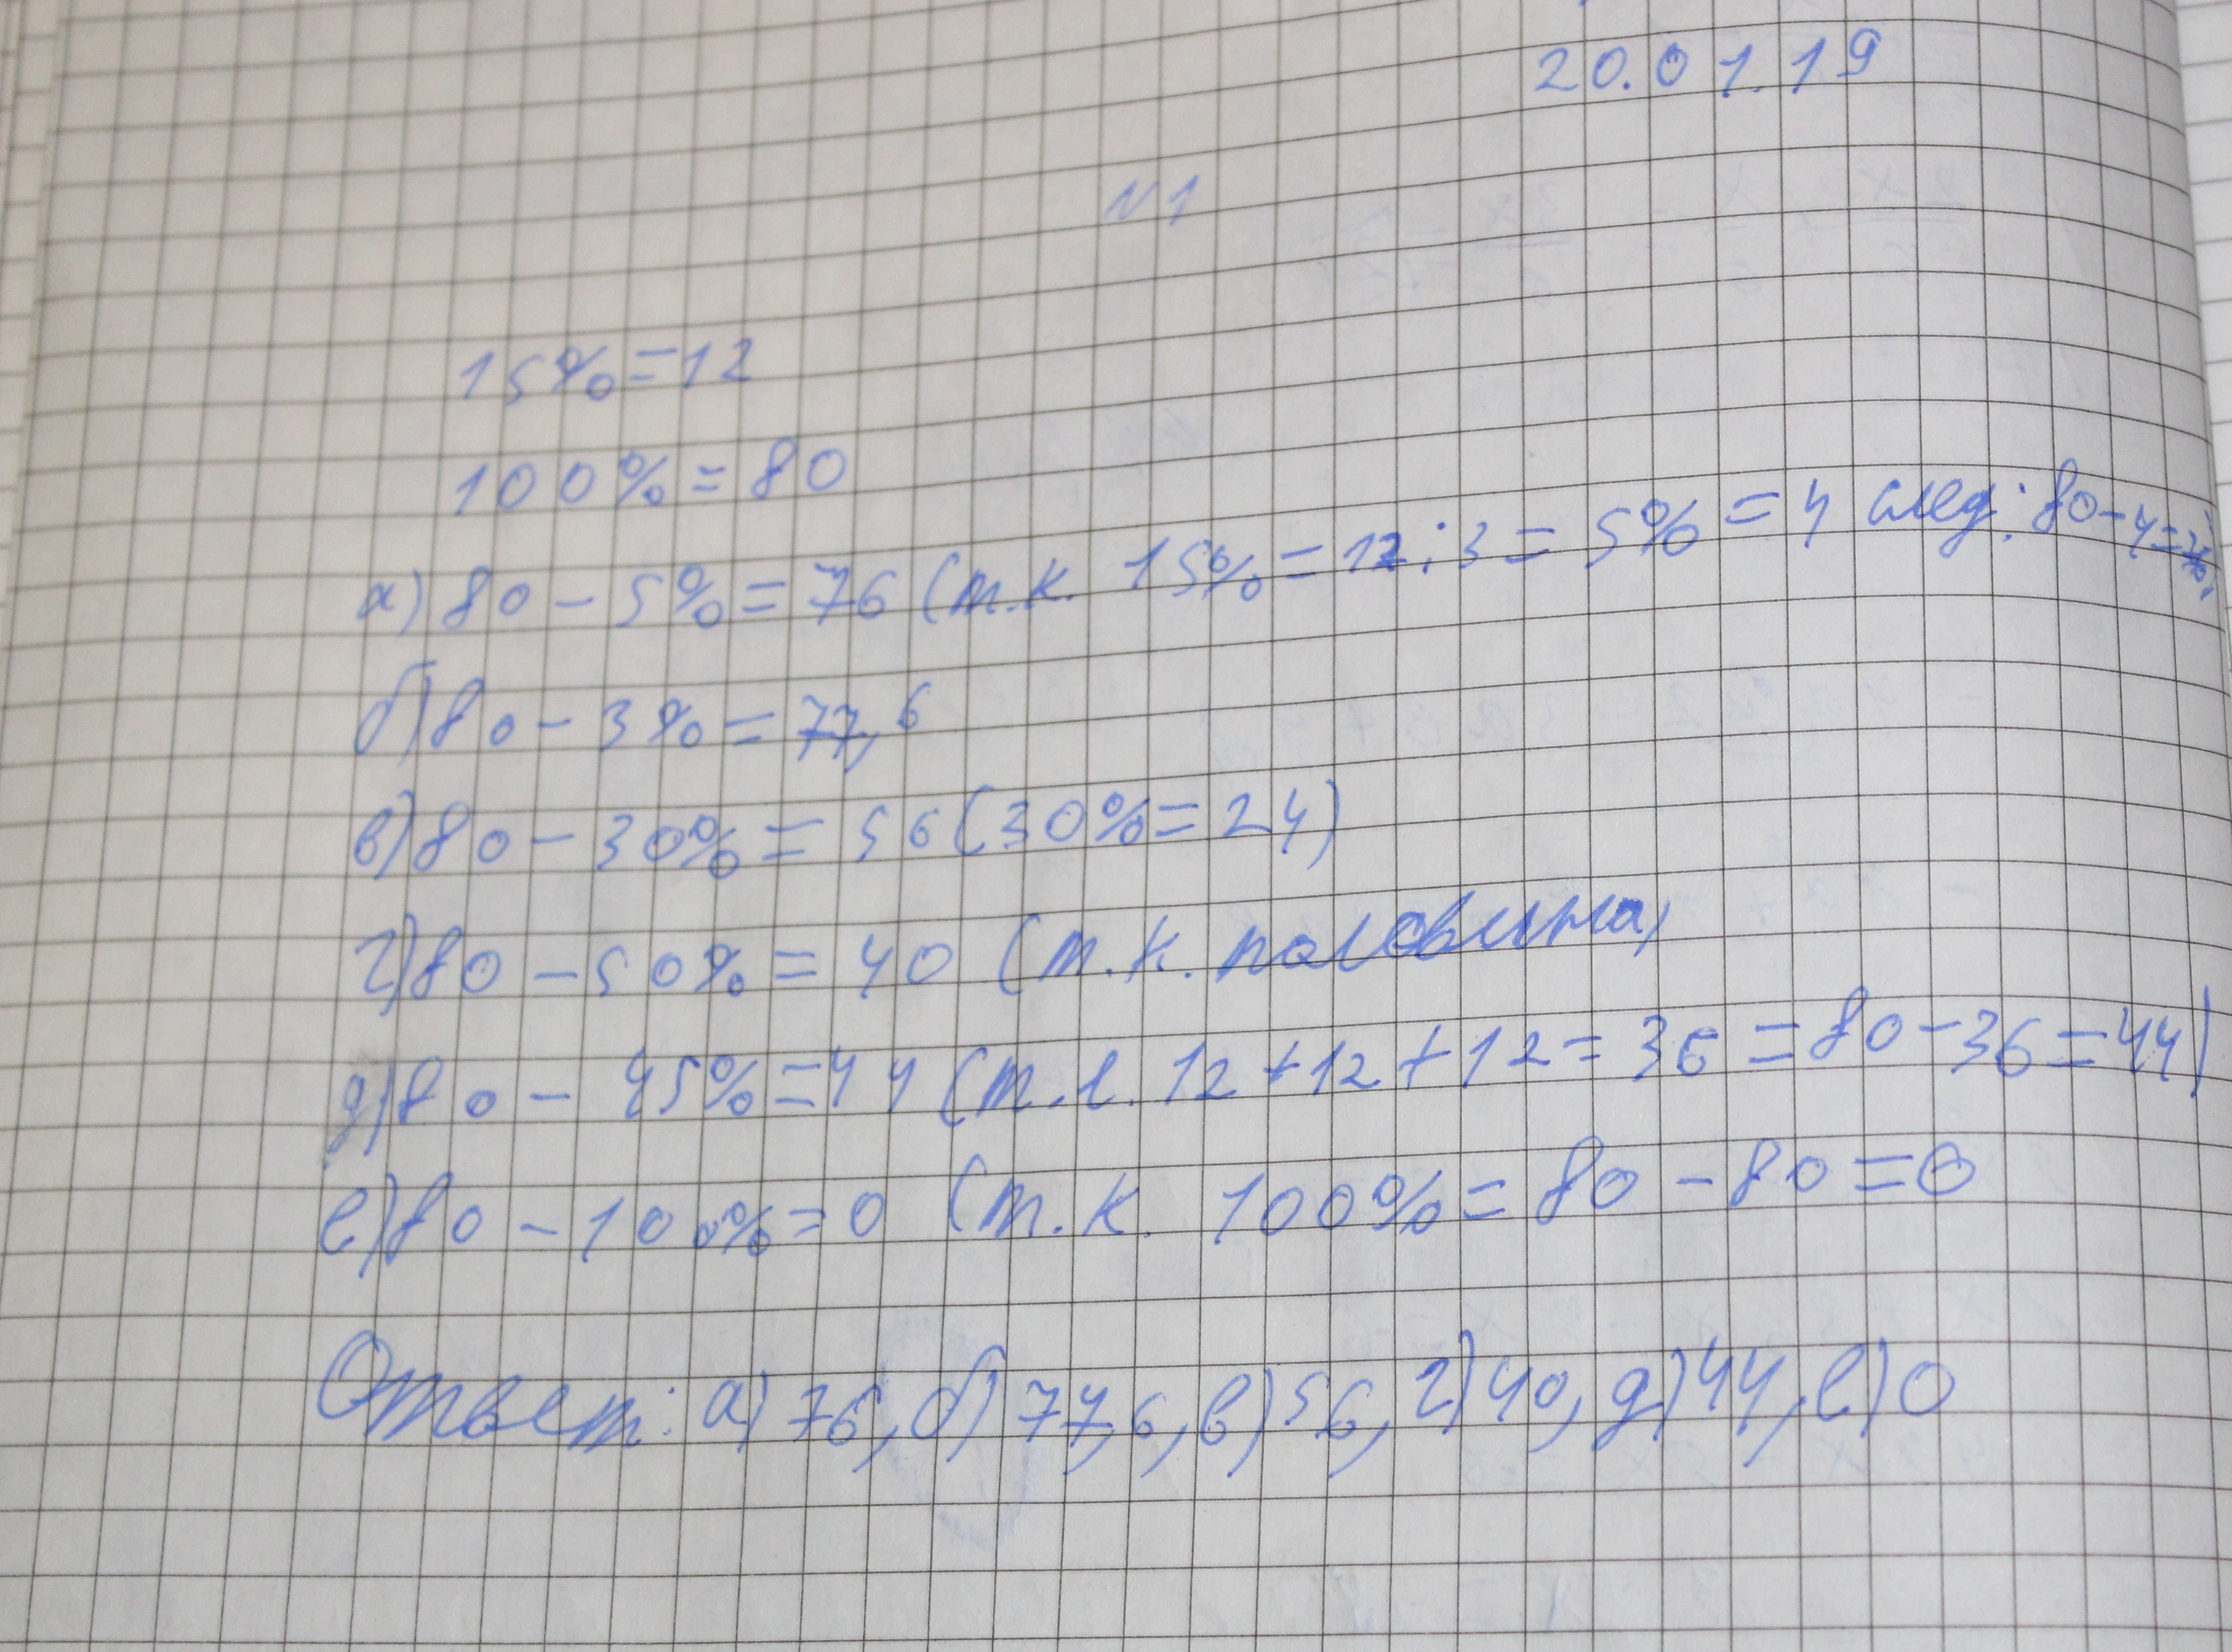 20.01.19
№1
15%=12
100%=80
а) 80-5%=76 (т.к. 15%=12:3=5%=4 след: 80-4=76)
б) 80-3%=77,6
в) 80-30%=56 (30%=24)
г) 80-50%=40 (т.к. половина)
д) 80-45%=44 (т.е. 12+12+12=36=80-36=44)
е) 80-100%=0 (т.к. 100%=80-80=0
Ответ: а) 76, б) 77,6, в) 56, г) 40, д) 44, е) 0